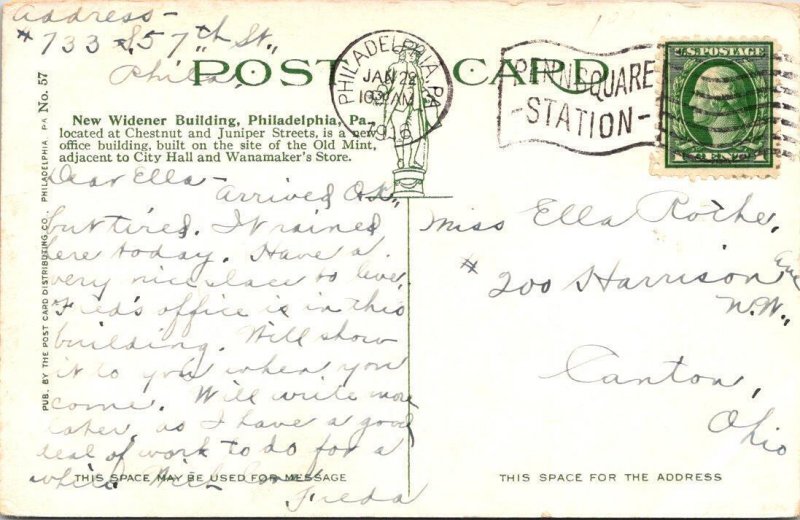 Address -
# 733 S 57th St.,
Phila.
POST CARD
PHILADELPHIA, PA.
JAN 22
1030 AM
1916
PENN SQUARE
-STATION-
U.S. POSTAGE
New Widener Building, Philadelphia, Pa.,
located at Chestnut and Juniper Streets, is a new
office building, built on the site of the Old Mint,
adjacent to City Hall and Wanamaker's Store.
PUB. BY THE POST CARD DISTRIBUTING CO., PHILADELPHIA PA No. 57
Dear Ella - Arrived O.K.,
but tired. It rained
here today. Have a
very nice place to live.
Fred's office is in this
building. Will show
it to you when you
come. Will write more
later, as I have a good
deal of work to do for a
while.
Frieda
THIS SPACE MAY BE USED FOR MESSAGE
Miss Ella Rothe,
# 200 Harrison Ave
N.W.,
Canton,
Ohio
THIS SPACE FOR THE ADDRESS